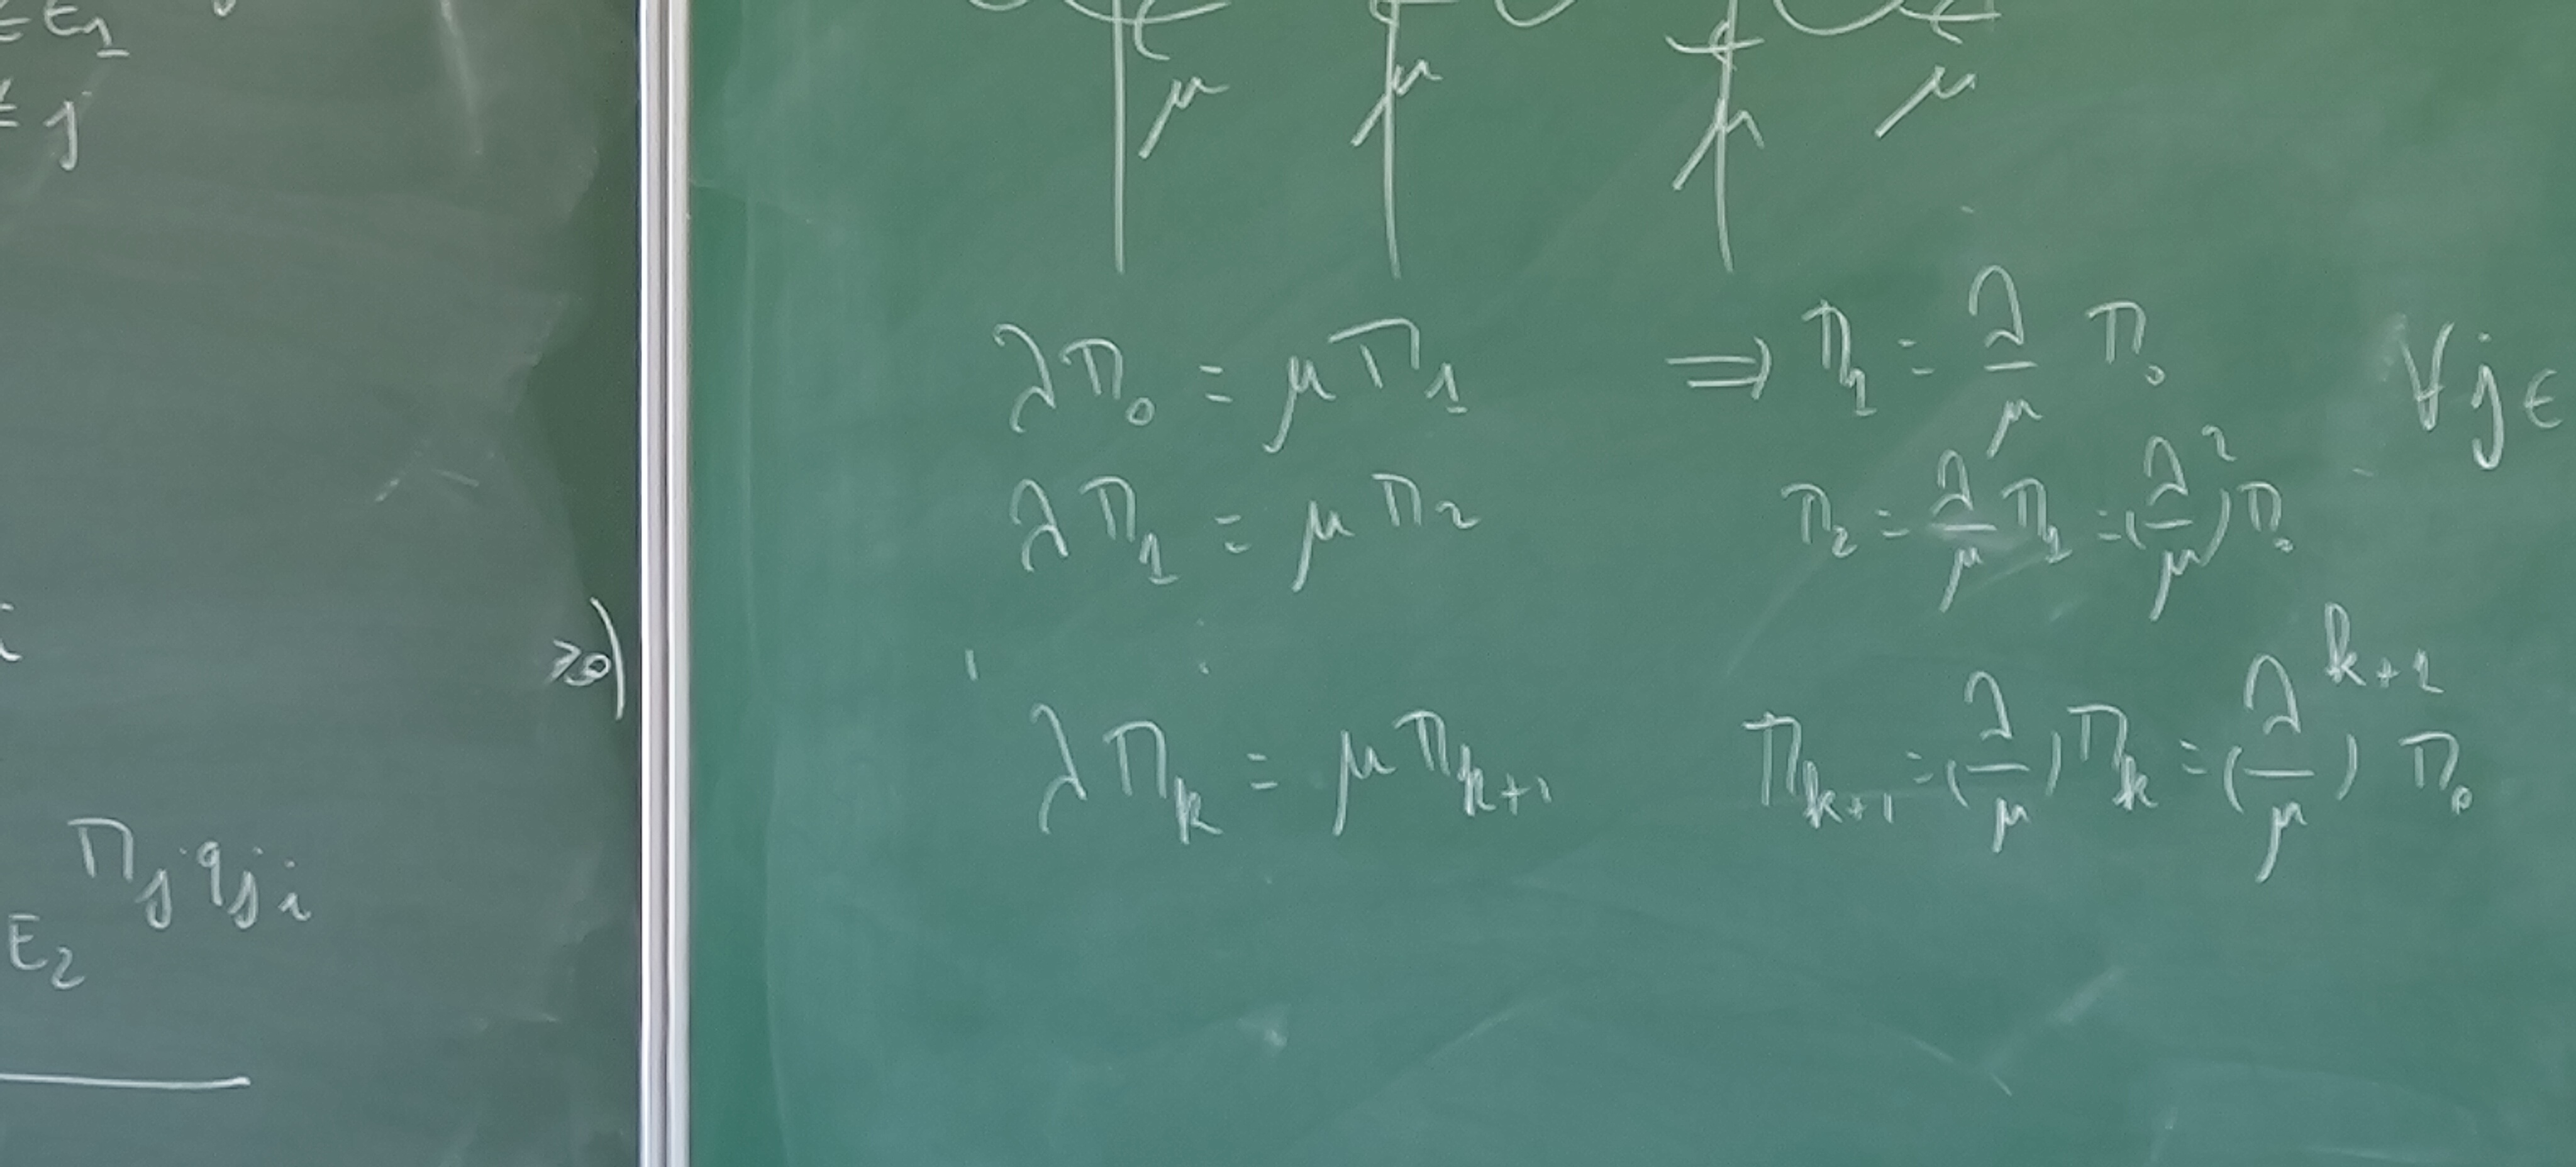 E₁
j
≥0)
Π_j q_{ji}
E₂
μ μ μ μ
λΠ₀ = μΠ₁ ⇒ Π₁ = λ/μ Π₀ ∀j∈
λΠ₁ = μΠ₂ Π₂ = λ/μ Π₁ = (λ/μ)² Π₀
λΠ_k = μΠ_{k+1} Π_{k+1} = (λ/μ) Π_k = (λ/μ)^{k+1} Π₀